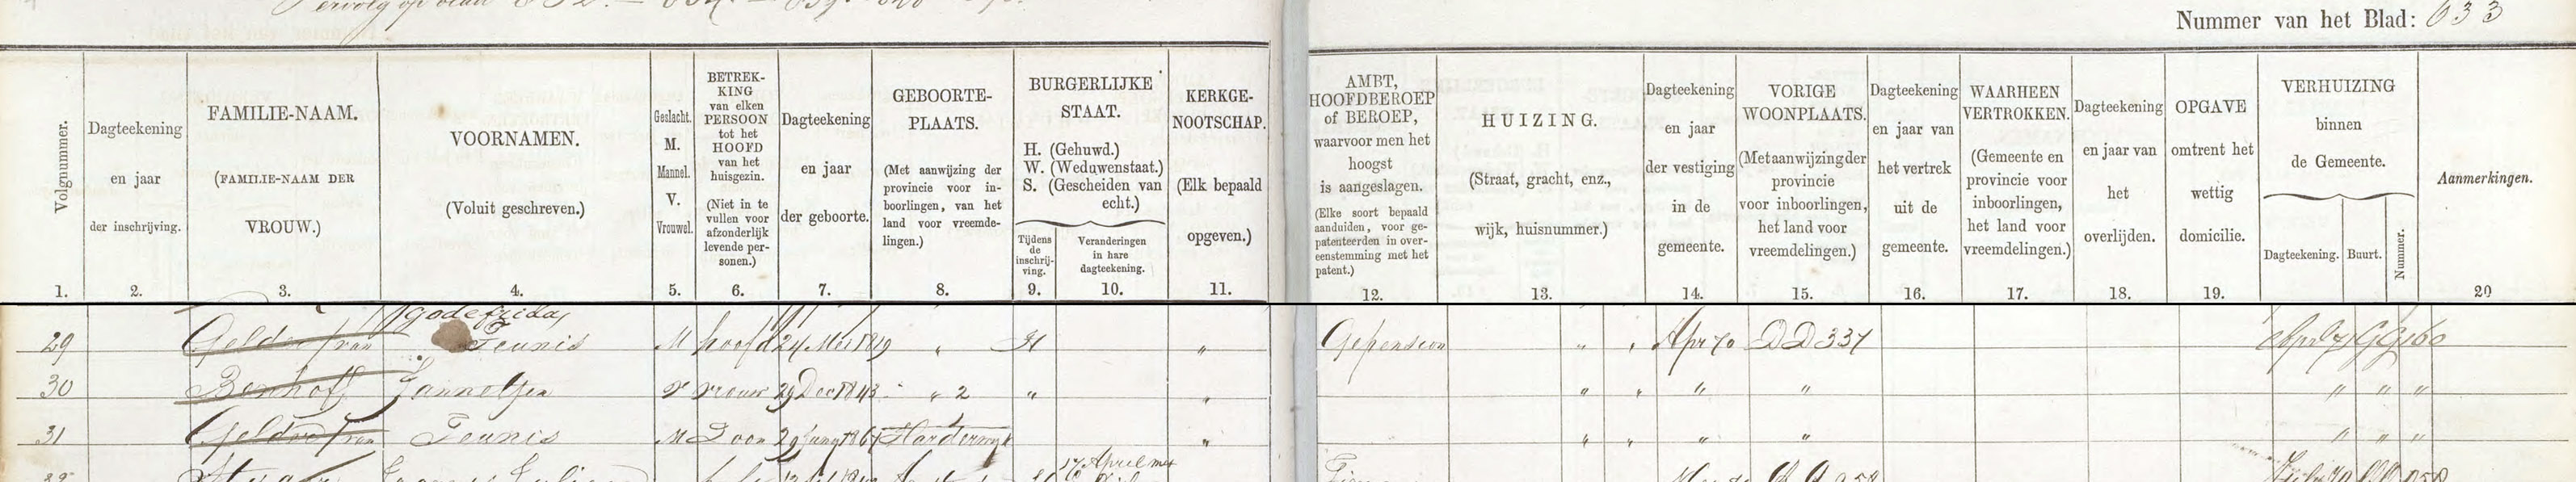 Vervolg op blad
Nummer van het Blad: 633
Volgnummer.
Dagteekening
en jaar
der inschrijving.
FAMILIE-NAAM.
(FAMILIE-NAAM DER
VROUW.)
VOORNAMEN.
(Voluit geschreven.)
Geslacht.
M.
Mannel.
V.
Vrouwel.
BETREK-
KING
van elken
PERSOON
tot het
HOOFD
van het
huisgezin.
(Niet in te
vullen voor
afzonderlijk
levende per-
sonen.)
Dagteekening
en jaar
der geboorte.
GEBOORTE-
PLAATS.
(Met aanwijzing der
provincie voor in-
boorlingen, van het
land voor vreemde-
lingen.)
BURGERLIJKE
STAAT.
H. (Gehuwd.)
W. (Weduwenstaat.)
S. (Gescheiden van
echt.)
Tijdens
de
inschrij-
ving.
Veranderingen
in hare
dagteekening.
KERKGE-
NOOTSCHAP.
(Elk bepaald
opgeven.)
AMBT,
HOOFDBEROEP
of BEROEP,
waarvoor men het
hoogst
is aangeslagen.
(Elke soort bepaald
aanduiden, voor ge-
patenteerden in over-
eenstemming met het
patent.)
HUIZING.
(Straat, gracht, enz.,
wijk, huisnummer.)
Dagteekening
en jaar
der vestiging
in de
gemeente.
VORIGE
WOONPLAATS.
(Met aanwijzing der
provincie
voor inboorlingen,
het land voor
vreemdelingen.)
Dagteekening
en jaar van
het vertrek
uit de
gemeente.
WAARHEEN
VERTROKKEN.
(Gemeente en
provincie voor
inboorlingen,
het land voor
vreemdelingen.)
Dagteekening
en jaar van
het
overlijden.
OPGAVE
omtrent het
wettig
domicilie.
VERHUIZING
binnen
de Gemeente.
Dagteekening.
Buurt.
Nummer.
Aanmerkingen.
1. 2. 3. 4. 5. 6. 7. 8. 9. 10. 11. 12. 13. 14. 15. 16. 17. 18. 19. 20
Godefrida
29 Gelder van Teunis M hoofd 24 Mei 1819 " H " Gepension " " Apr 70 DD 337 Apr 71 GG 160
30 Benhoff Jannetjen V vrouw 29 Dec 1843 " 2 " " " " " " " " "
31 Gelder van Teunis M Zoon 29 Juny 1867 Harderwyk " " " " " " " "
17 April met